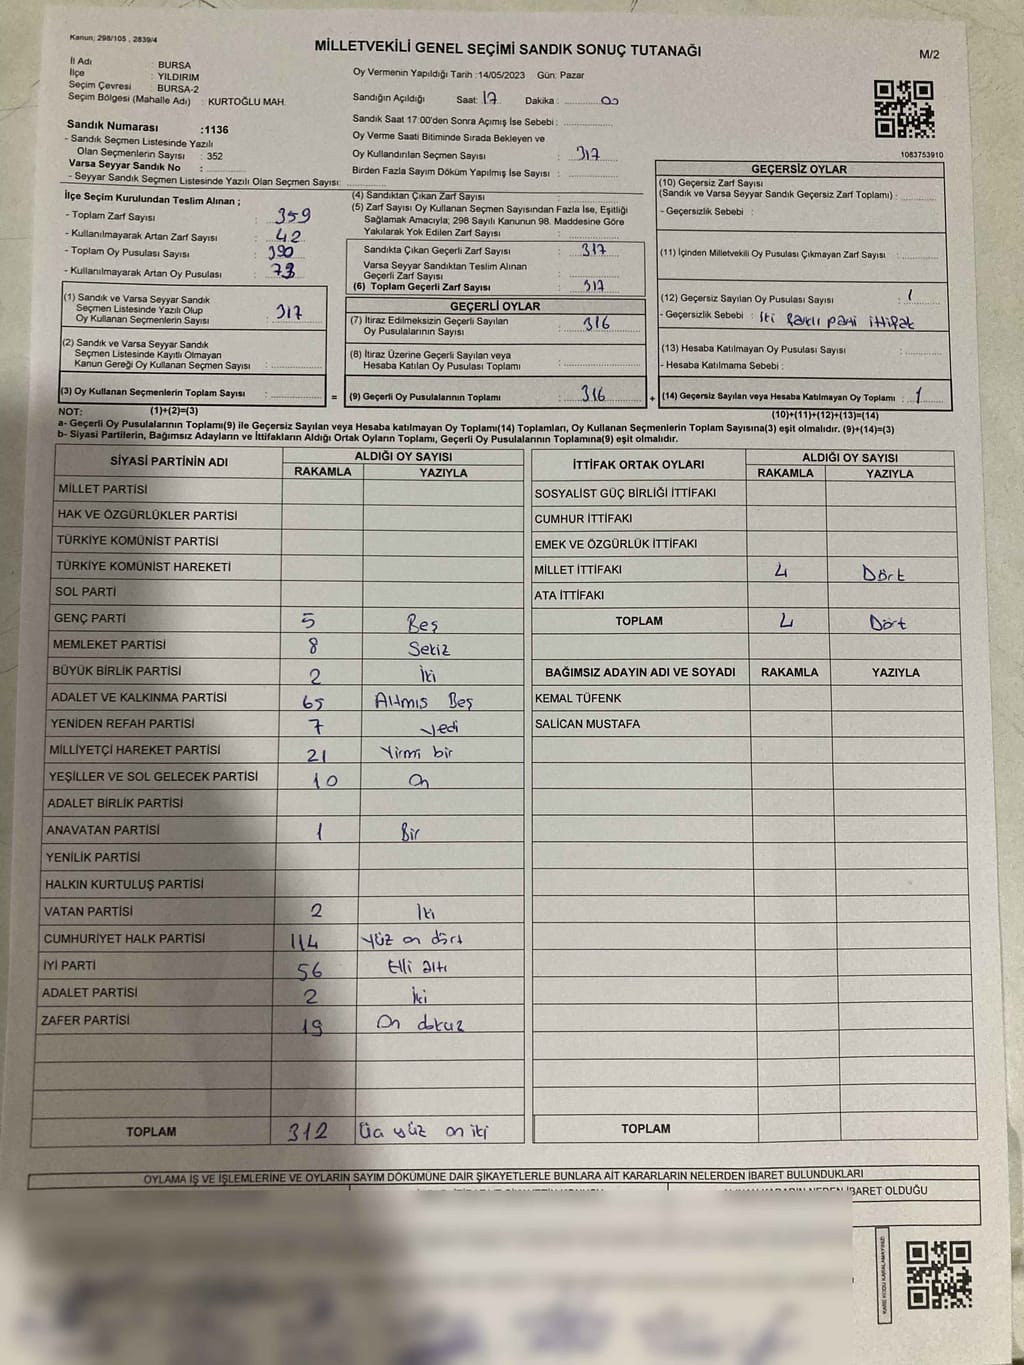 Kanun; 298/105 , 2839/4
MİLLETVEKİLİ GENEL SEÇİMİ SANDIK SONUÇ TUTANAĞI
M/2
İl Adı : BURSA
İlçe : YILDIRIM
Seçim Çevresi : BURSA-2
Seçim Bölgesi (Mahalle Adı) : KURTOĞLU MAH.
Oy Vermenin Yapıldığı Tarih :14/05/2023 Gün: Pazar
Sandığın Açıldığı Saat: 17 Dakika : 00
Sandık Saat 17:00'den Sonra Açımış İse Sebebi :
Oy Verme Saati Bitiminde Sırada Bekleyen ve
Oy Kullandırılan Seçmen Sayısı : 317
Birden Fazla Sayım Döküm Yapılmış İse Sayısı :
Sandık Numarası :1136
- Sandık Seçmen Listesinde Yazılı
Olan Seçmenlerin Sayısı : 352
Varsa Seyyar Sandık No :
- Seyyar Sandık Seçmen Listesinde Yazılı Olan Seçmen Sayısı:
1083753910
İlçe Seçim Kurulundan Teslim Alınan ;
- Toplam Zarf Sayısı : 359
- Kullanılmayarak Artan Zarf Sayısı : 42
- Toplam Oy Pusulası Sayısı : 390
- Kullanılmayarak Artan Oy Pusulası : 73
(1) Sandık ve Varsa Seyyar Sandık
Seçmen Listesinde Yazılı Olup
Oy Kullanan Seçmenlerin Sayısı : 317
(2) Sandık ve Varsa Seyyar Sandık
Seçmen Listesinde Kayıtlı Olmayan
Kanun Gereği Oy Kullanan Seçmen Sayısı :
(3) Oy Kullanan Seçmenlerin Toplam Sayısı :
(4) Sandıktan Çıkan Zarf Sayısı :
(5) Zarf Sayısı Oy Kullanan Seçmen Sayısından Fazla İse, Eşitliği
Sağlamak Amacıyla; 298 Sayılı Kanunun 98. Maddesine Göre
Yakılarak Yok Edilen Zarf Sayısı :
Sandıkta Çıkan Geçerli Zarf Sayısı : 317
Varsa Seyyar Sandıktan Teslim Alınan
Geçerli Zarf Sayısı :
(6) Toplam Geçerli Zarf Sayısı : 317
GEÇERLİ OYLAR
(7) İtiraz Edilmeksizin Geçerli Sayılan
Oy Pusulalarının Sayısı : 316
(8) İtiraz Üzerine Geçerli Sayılan veya
Hesaba Katılan Oy Pusulası Toplamı :
= (9) Geçerli Oy Pusulalarının Toplamı : 316
GEÇERSİZ OYLAR
(10) Geçersiz Zarf Sayısı
(Sandık ve Varsa Seyyar Sandık Geçersiz Zarf Toplamı) :
- Geçersizlik Sebebi :
(11) İçinden Milletvekili Oy Pusulası Çıkmayan Zarf Sayısı :
(12) Geçersiz Sayılan Oy Pusulası Sayısı : 1
- Geçersizlik Sebebi : iki farklı parti ittifak
(13) Hesaba Katılmayan Oy Pusulası Sayısı :
- Hesaba Katılmama Sebebi :
+ (14) Geçersiz Sayılan veya Hesaba Katılmayan Oy Toplamı : 1
NOT: (1)+(2)=(3)
(10)+(11)+(12)+(13)=(14)
a- Geçerli Oy Pusulalarının Toplamı(9) ile Geçersiz Sayılan veya Hesaba katılmayan Oy Toplamı(14) Toplamları, Oy Kullanan Seçmenlerin Toplam Sayısına(3) eşit olmalıdır. (9)+(14)=(3)
b- Siyasi Partilerin, Bağımsız Adayların ve İttifakların Aldığı Ortak Oyların Toplamı, Geçerli Oy Pusulalarının Toplamına(9) eşit olmalıdır.
SİYASİ PARTİNİN ADI ALDIĞI OY SAYISI
RAKAMLA YAZIYLA
MİLLET PARTİSİ
HAK VE ÖZGÜRLÜKLER PARTİSİ
TÜRKİYE KOMÜNİST PARTİSİ
TÜRKİYE KOMÜNİST HAREKETİ
SOL PARTİ
GENÇ PARTİ 5 Beş
MEMLEKET PARTİSİ 8 Sekiz
BÜYÜK BİRLİK PARTİSİ 2 İki
ADALET VE KALKINMA PARTİSİ 65 Altmış Beş
YENİDEN REFAH PARTİSİ 7 yedi
MİLLİYETÇİ HAREKET PARTİSİ 21 Yirmi bir
YEŞİLLER VE SOL GELECEK PARTİSİ 10 On
ADALET BİRLİK PARTİSİ
ANAVATAN PARTİSİ 1 Bir
YENİLİK PARTİSİ
HALKIN KURTULUŞ PARTİSİ
VATAN PARTİSİ 2 İki
CUMHURİYET HALK PARTİSİ 114 yüz on dört
İYİ PARTİ 56 Elli altı
ADALET PARTİSİ 2 İki
ZAFER PARTİSİ 19 On dokuz
TOPLAM 312 Üç yüz on iki
İTTİFAK ORTAK OYLARI ALDIĞI OY SAYISI
RAKAMLA YAZIYLA
SOSYALİST GÜÇ BİRLİĞİ İTTİFAKI
CUMHUR İTTİFAKI
EMEK VE ÖZGÜRLÜK İTTİFAKI
MİLLET İTTİFAKI 4 Dört
ATA İTTİFAKI
TOPLAM 4 Dört
BAĞIMSIZ ADAYIN ADI VE SOYADI RAKAMLA YAZIYLA
KEMAL TÜFENK
SALİCAN MUSTAFA
TOPLAM
OYLAMA İŞ VE İŞLEMLERİNE VE OYLARIN SAYIM DÖKÜMÜNE DAİR ŞİKAYETLERLE BUNLARA AİT KARARLARIN NELERDEN İBARET BULUNDUKLARI
İBARET OLDUĞU
KARE KODU KARALAMAYINIZ!